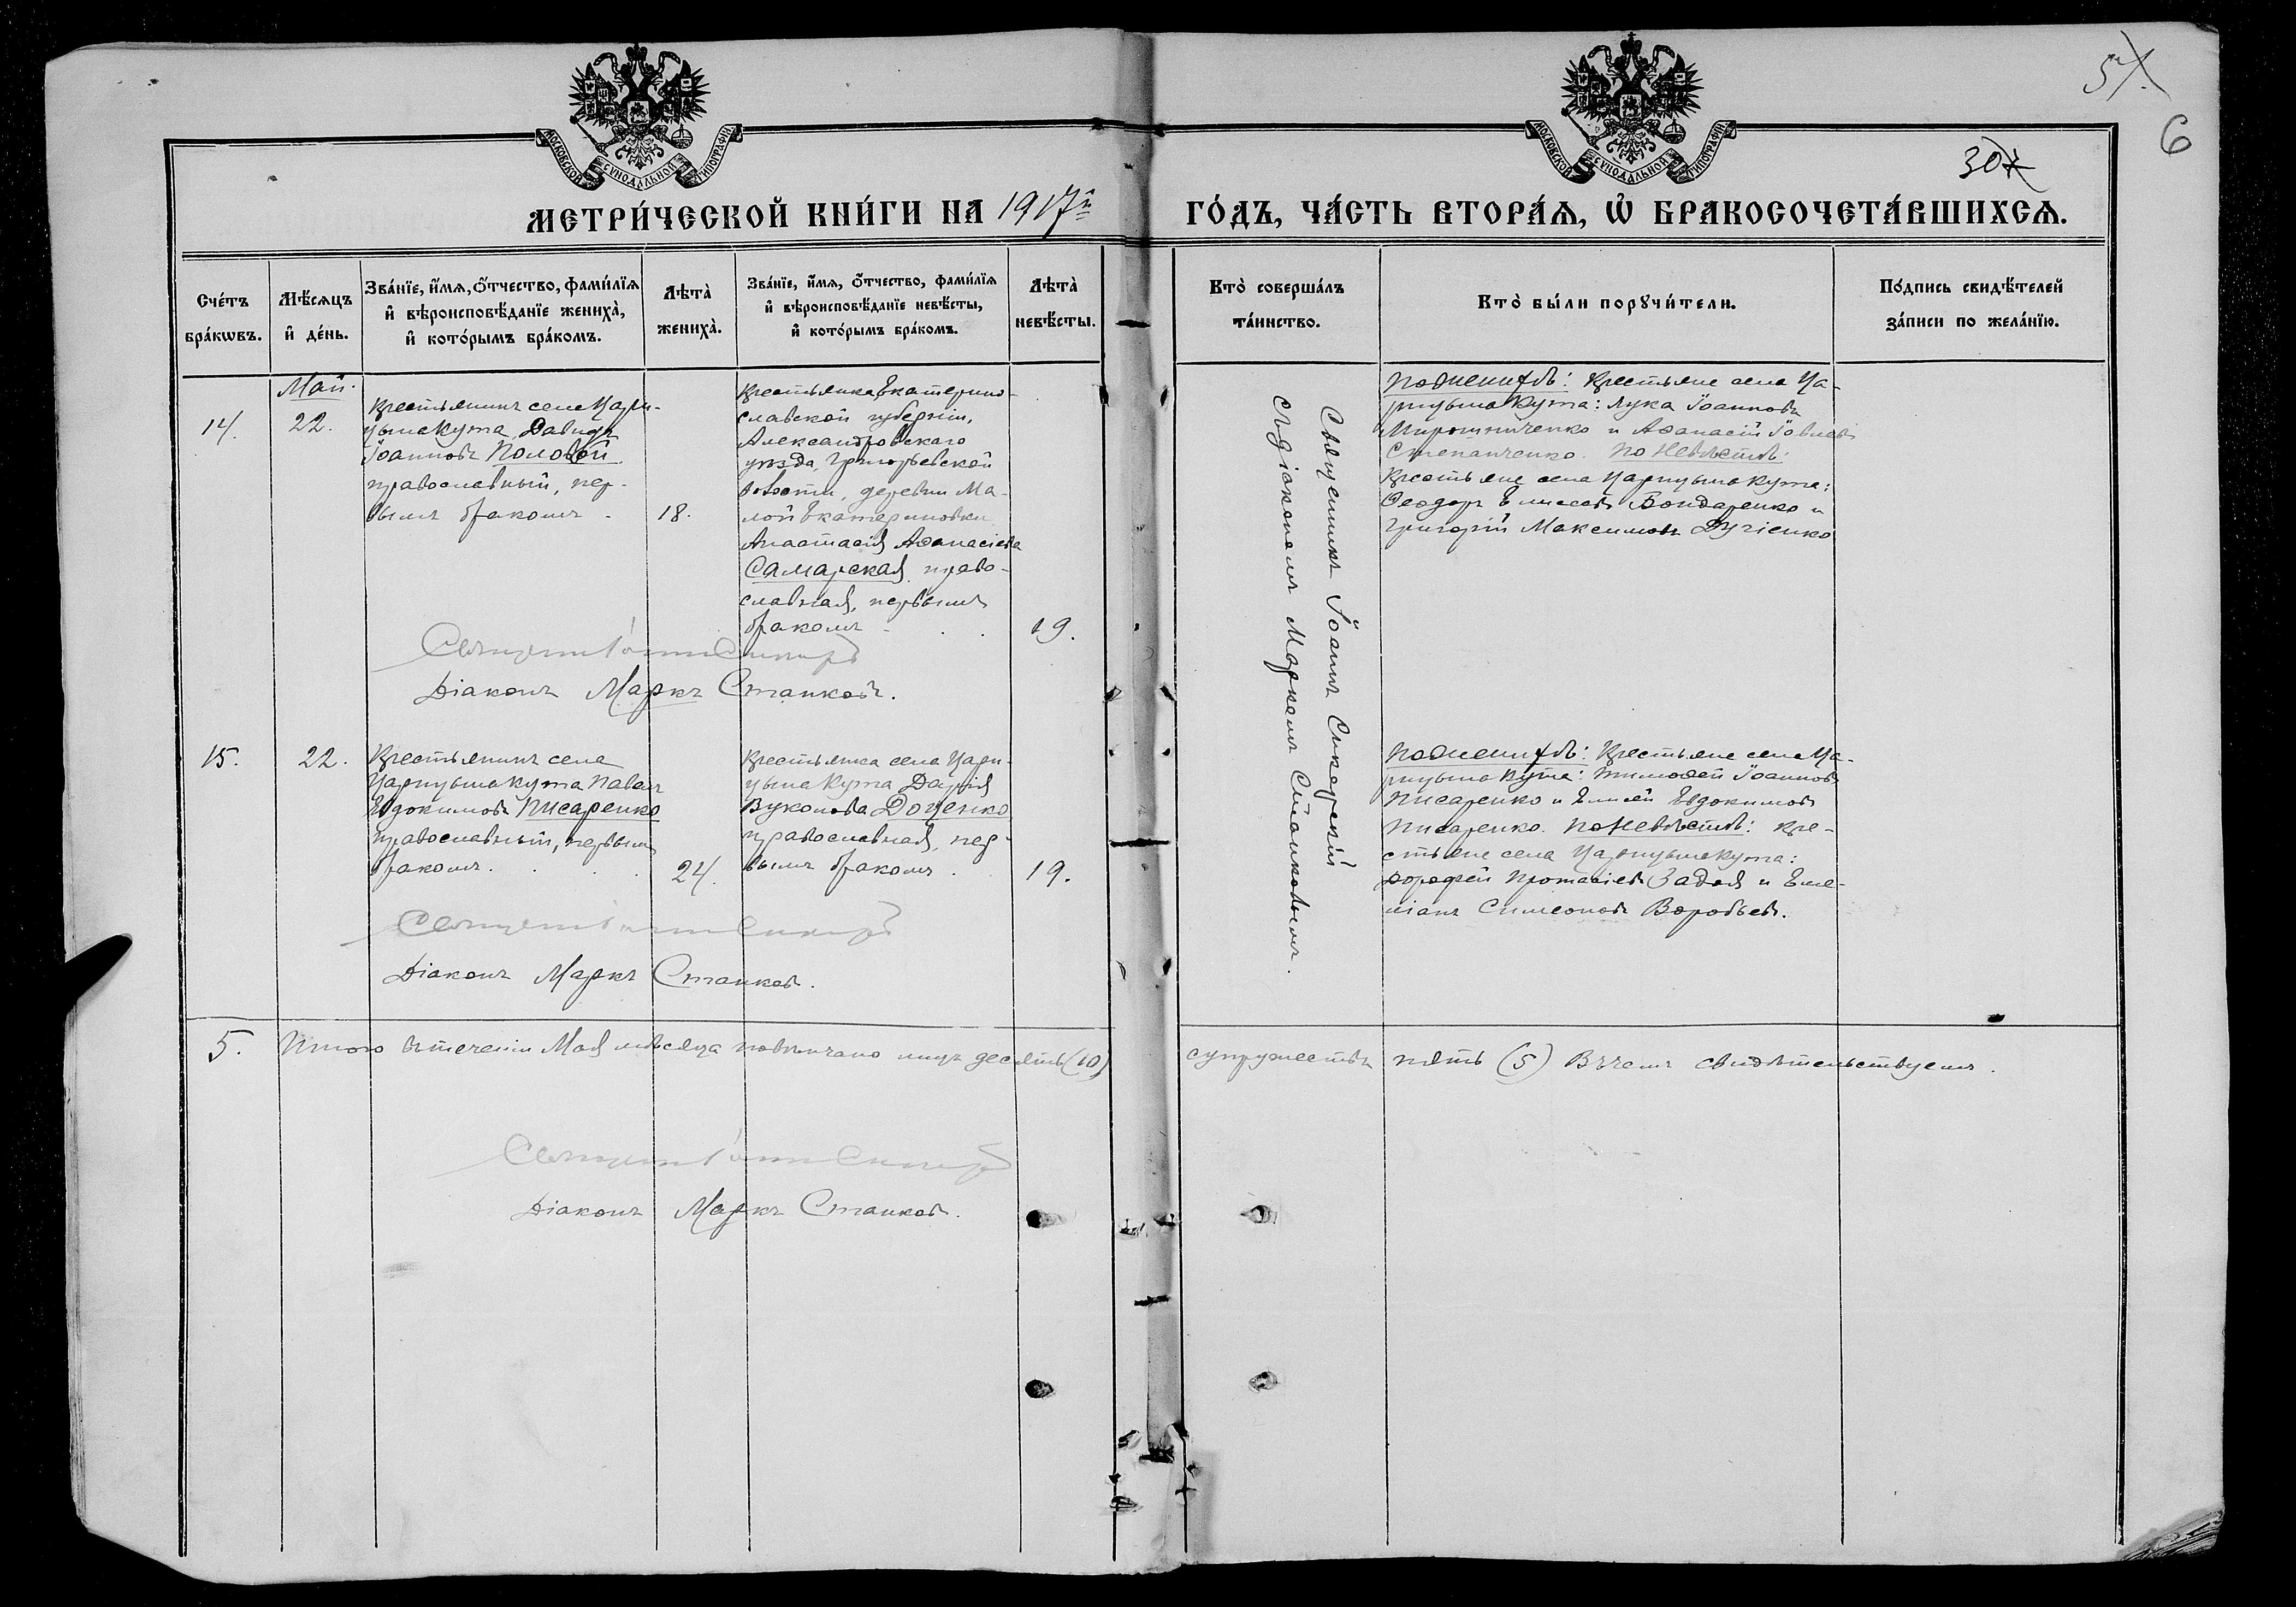 5
6
30
МОСКОВСКОЙ СѴНОДАЛЬНОЙ ТИПОГРАФІИ
МОСКОВСКОЙ СѴНОДАЛЬНОЙ ТИПОГРАФІИ
МЕТРИ́ЧЕСКОЙ КНИ́ГИ НА 1917й ГО́ДЪ, ЧА́СТЬ ВТОРА́Я, Ѡ БРАКОСОЧЕТА́ВШИХСѦ.
Сче́тъ
бра́кѡвъ.
Мѣ́сѧцъ
и҆ де́нь.
Зва́нїе, и҆́мѧ, ѻ҆́тчество, фами́лїѧ
и҆ вѣроисповѣ́данїе жениха̀,
и҆ кото́рымъ бра́комъ.
Лѣта̀
жениха̀.
Зва́нїе, и҆́мѧ, ѻ҆́тчество, фами́лїѧ
и҆ вѣроисповѣ́данїе невѣ́сты,
и҆ кото́рымъ бра́комъ.
Лѣта̀
невѣ́сты.
Кто̀ соверша́лъ
та́инство.
Кто̀ бы́ли порꙋчи́тели.
По́дпись свидѣ́телей
за́писи по жела́нїю.
Май.
14.
22.
Крестьянинъ села Цари-
цына Кута, Давидъ
Іоанновъ Половой
православный, пер-
вымъ бракомъ.
18.
Крестьянка Екатерино-
славской губерніи,
Александровскаго
уѣзда, Григорьевской
волости, деревни Ма-
лой Екатериновки
Анастасія Аѳанасіева
Самарская, право-
славная, первымъ
бракомъ
19.
Священникъ Іоаннъ Сикорскій
съ діакономъ Маркомъ Станковымъ.
По женихѣ: Крестьяне села Ца-
рицына Кута: Лука Іоанновъ
Мирошниченко и Аѳанасій Іовлевъ
Степанченко. По невѣстѣ:
Крестьяне села Царицына Кута:
Ѳеодоръ Елисеевъ Бондаренко и
Григорій Максимовъ
Діаконъ Маркъ Станковъ.
15.
22.
Крестьянинъ села
Царицына Кута Павелъ
Евдокимовъ Писаренко
православный, первымъ
бракомъ.
24.
Крестьянка села Цари-
цына Кута Дарія
Вуколова Доценко
православная, пер-
вымъ бракомъ.
19.
По женихѣ: Крестьяне села Ца-
рицына Кута: Тимоѳей Іоанновъ
Писаренко и Евдокимовъ
Писаренко. По невѣстѣ: кре-
стьяне села Царицына Кута:
Дороѳей Протасіевъ Задоя и Еме-
ліанъ Симеоновъ Воробьевъ.
Діаконъ Маркъ Станковъ.
5.
Итого въ теченіи Мая мѣсяца повѣнчано лицъ десять (10) супружествъ пять (5) Въ чемъ свидѣтельствуемъ.
Діаконъ Маркъ Станковъ.